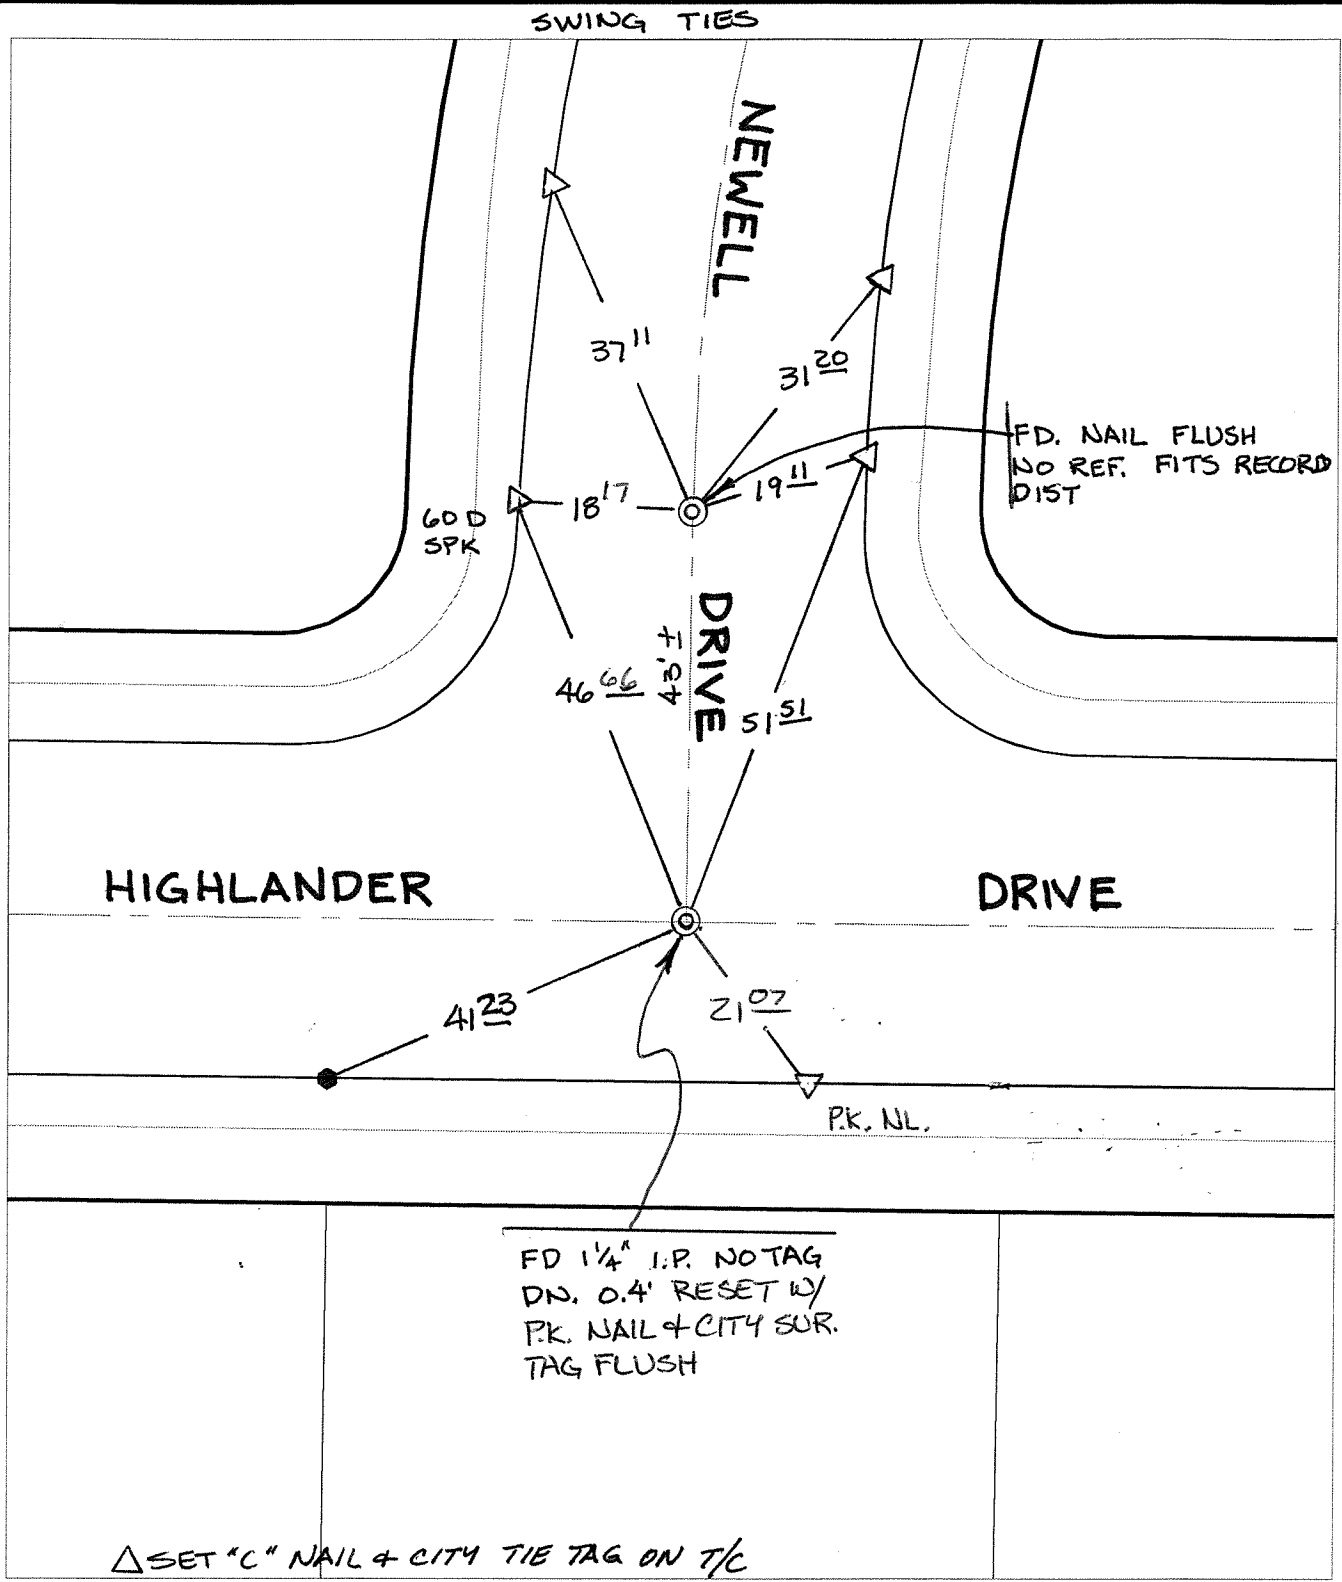 SWING TIES
NEWELL
37 11
31 20
FD. NAIL FLUSH
NO REF. FITS RECORD
DIST
19 11
18 17
60 D
SPK
DRIVE
43' ±
46 66
51 51
HIGHLANDER DRIVE
41 23
21 07
P.K. NL.
FD 1 1/4" I.P. NO TAG
DN. 0.4' RESET W/
P.K. NAIL & CITY SUR.
TAG FLUSH
△ SET "C" NAIL & CITY TIE TAG ON T/C